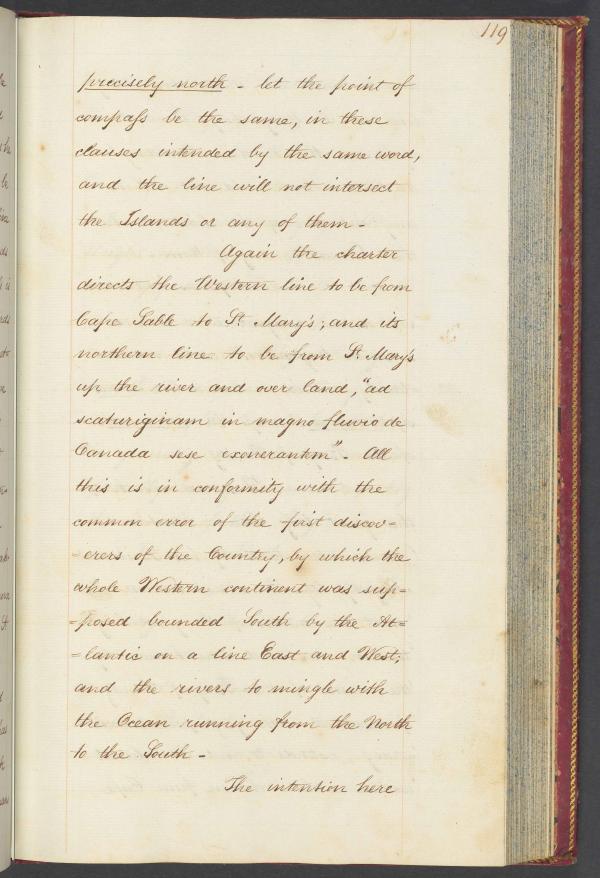 119
precisely north - let the point of
compaſs be the same, in these
clauses intended by the same word,
and the line will not intersect
the Islands or any of them -
Again the charter
directs the Western line to be from
Cape Sable to St. Mary's; and its
northern line to be from St. Mary's
up the river and over land, "ad
scaturiginam in magno fluvio de
Canada sese exonerantem" - All
this is in conformity with the
common error of the first discov-
=erers of the Country, by which the
whole Western continent was sup=
=posed bounded South by the At=
=lantic on a line East and West;
and the rivers to mingle with
the Ocean running from the North
to the South -
The intention here